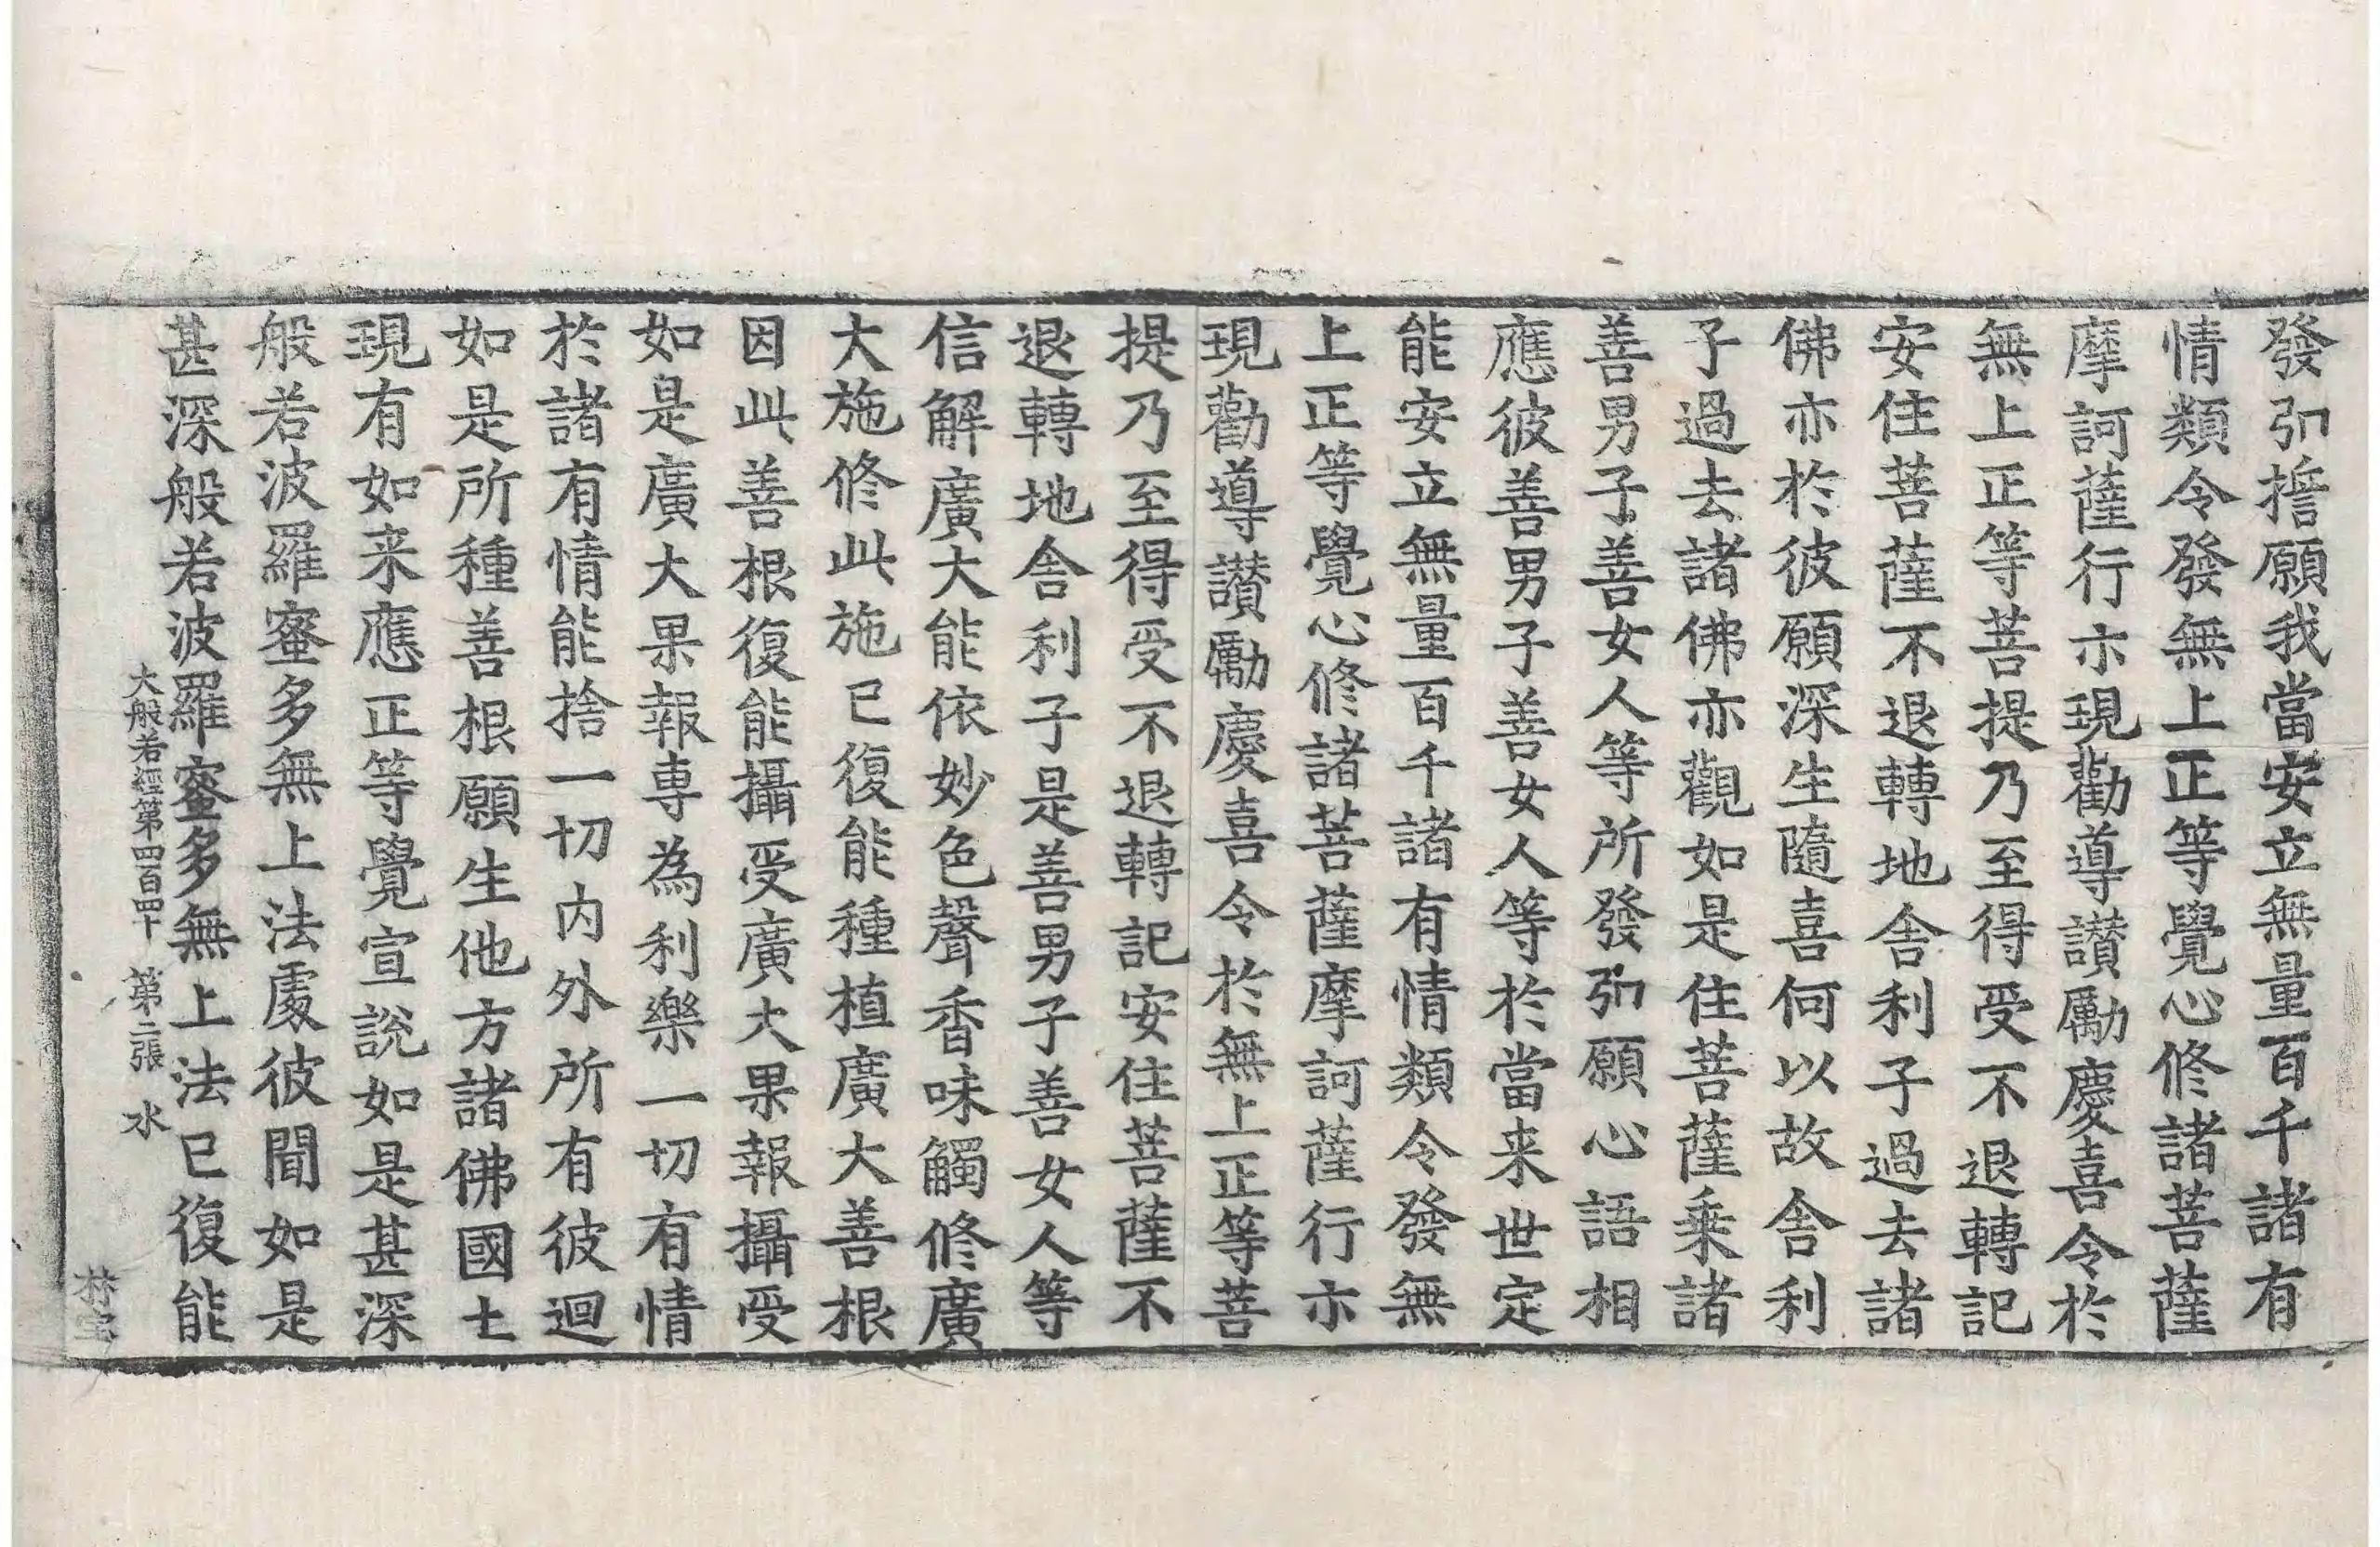 發弘擔願我當安立無量百千諸有
情類令發無上正等覺心修諸菩薩
摩訶薩行亦現勸導讃勵慶喜令於
無上正等菩提乃至得受不退轉記
安住菩薩不退轉地舍利子過去諸
佛亦於彼願深生隨喜何以故舍利
子過去諸佛亦觀如是住菩薩乘諸
善男子善女人等所發弘願心語相
應彼善男子善女人等於當来世定
能安立無量百千諸有情類令發無
上正等覺心修諸菩薩摩訶薩行亦
現勸導讃勵慶喜令於無上正等菩
提乃至得受不退轉記安住菩薩不
退轉地舍利子是善男子善女人等
信解廣大能依妙色聲香味觸修廣
大施修此施已復能種植廣大善根
因此善根復能攝受廣大果報攝受
如是廣大果報専為利樂一切有情
於諸有情能捨一切内外所有彼迴
如是所種善根願生他方諸佛國土
現有如来應正等覺宣說如是甚深
般若波羅蜜多無上法處彼聞如是
甚深般若波羅蜜多無上法已復能
大般若經第四百四十 第二張 水